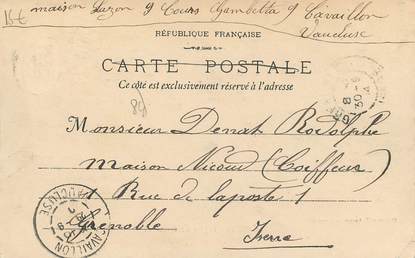 maison Lazon 9 Cours Gambetta 9 Cavaillon
Vaucluse
RÉPUBLIQUE FRANÇAISE
CARTE POSTALE
Ce côté est exclusivement réservé à l'adresse
Monsieur Denat Rodolphe
maison Nicoud (Coiffeur)
1 Rue de laposte 1
Grenoble
Iserre
CAVAILLON
VAUCLUSE